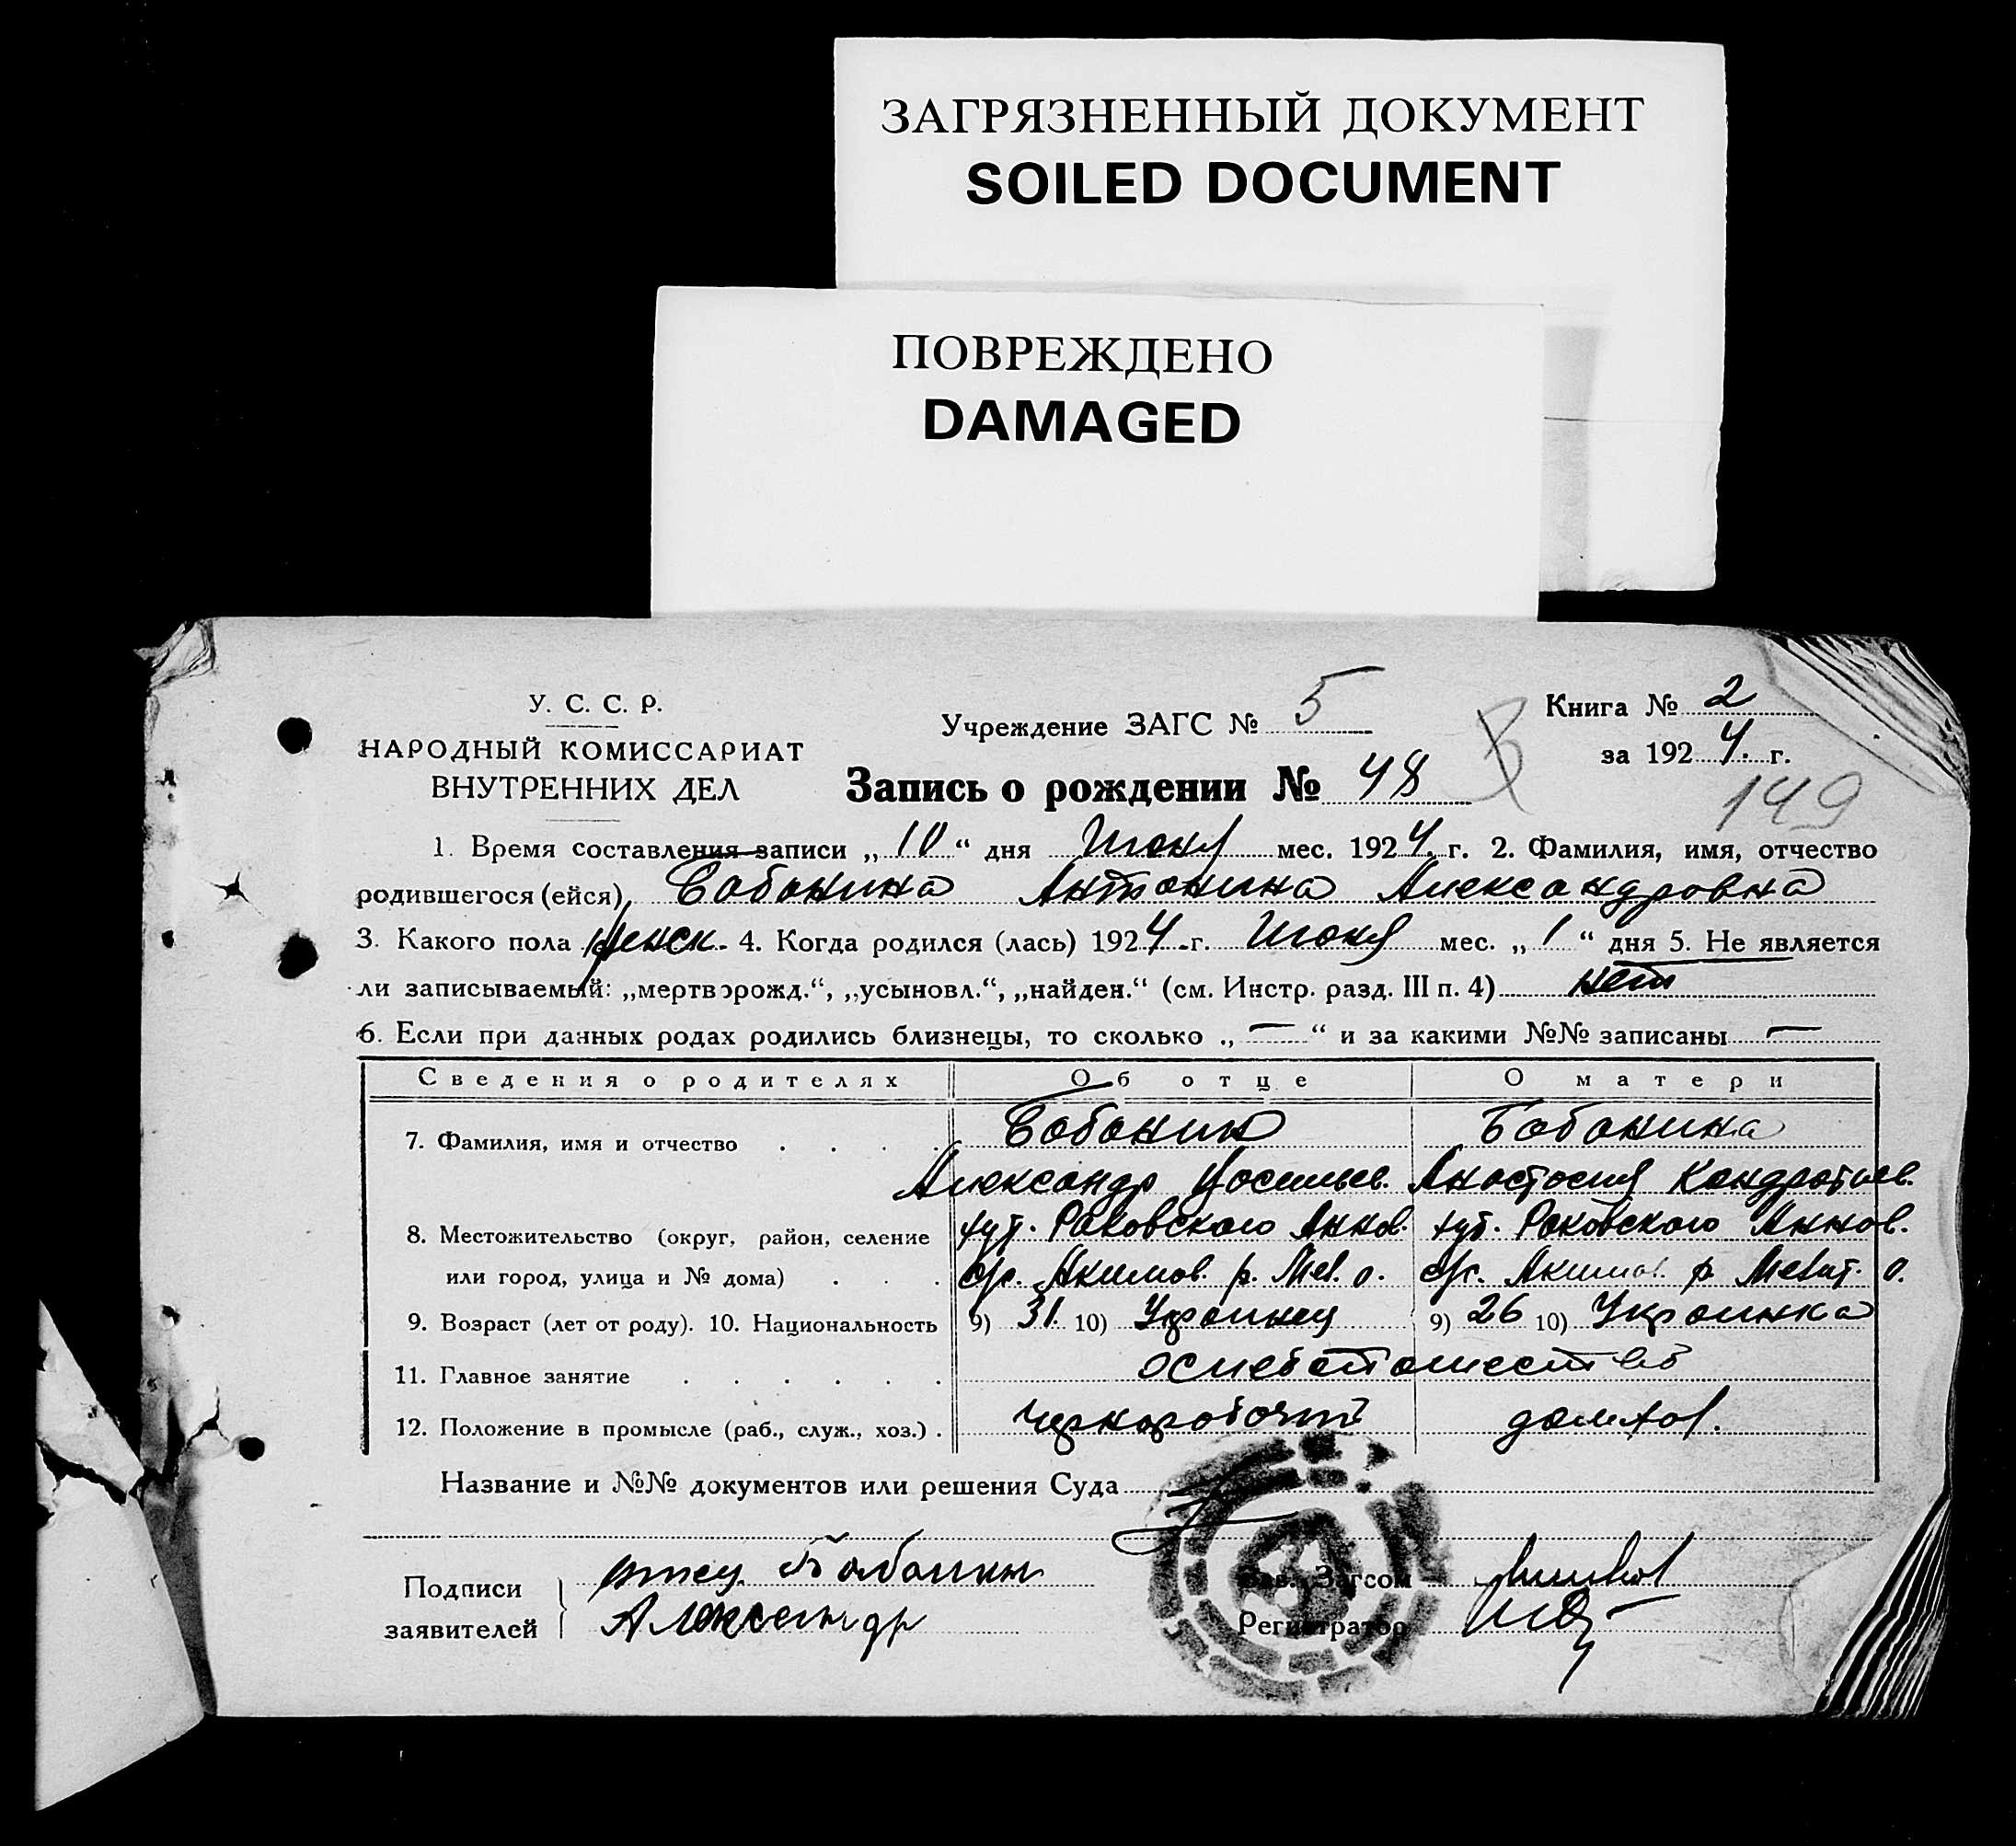 ЗАГРЯЗНЕННЫЙ ДОКУМЕНТ
SOILED DOCUMENT
ПОВРЕЖДЕНО
DAMAGED
У. С. С. Р.
НАРОДНЫЙ КОМИССАРИАТ
ВНУТРЕННИХ ДЕЛ
Учреждение ЗАГС № 5
Книга № 2
за 1924 г.
149
Запись о рождении № 48
1. Время составления записи „10“ дня мес. 1924 г. 2. Фамилия, имя, отчество
родившегося (ейся) Бабанина Антонина Александровна
3. Какого пола женск. 4. Когда родился (лась) 1924 г. мес. „1“ дня 5. Не является
ли записываемый: „мертворожд.“, „усыновл.“, „найден.“ (см. Инстр. разд. III п. 4) нет
6. Если при данных родах родились близнецы, то сколько „—“ и за какими №№ записаны —
Сведения о родителях Об отце О матери
7. Фамилия, имя и отчество Бабанин Бабанина
Александр Васильев. Анастасия Кондратьев.
8. Местожительство (округ, район, селение хут. Раковского Аннов. хут. Раковского Аннов.
или город, улица и № дома) с/с. Акимов. р. Мел. о. с/с. Акимов. р. Мелит. о.
9. Возраст (лет от роду). 10. Национальность 9) 31. 10) Украинец 9) 26 10) Украинка
11. Главное занятие
12. Положение в промысле (раб., служ., хоз.) чернорабочий домхоз.
Название и №№ документов или решения Суда
Подписи заявителей отец Бабанин
Александр
Зав. Загсом
Регистратор